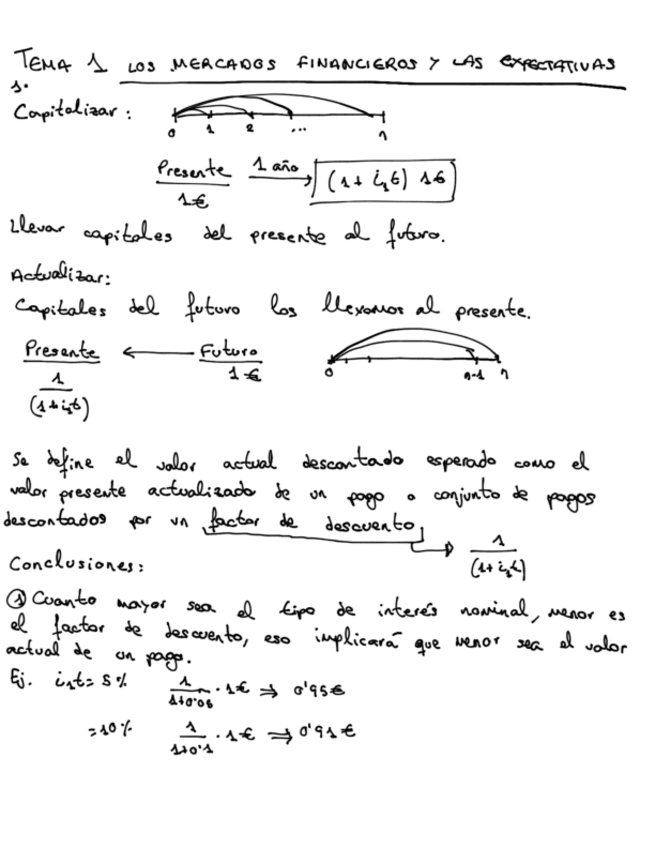 TEMA 1 LOS MERCADOS FINANCIEROS Y LAS EXPECTATIVAS
1.
Capitalizar:
0 1 2 ... n
Presente 1 año (1 + i₁t) 1€
1€
Llevar capitales del presente al futuro.
Actualizar:
Capitales del futuro los llevamos al presente.
Presente ← Futuro
1 1€
(1+i₁t)
0 n-1 n
Se define el valor actual descontado esperado como el
valor presente actualizado de un pago o conjunto de pagos
descontados por un factor de descuento
1
(1+i₁t)
Conclusiones:
① Cuanto mayor sea el tipo de interés nominal, menor es
el factor de descuento, eso implicará que menor sea el valor
actual de un pago.
Ej. i₁t = 5% 1/1+0'05 · 1€ ⇒ 0'95€
= 10% 1/1+0'1 · 1€ ⇒ 0'91€